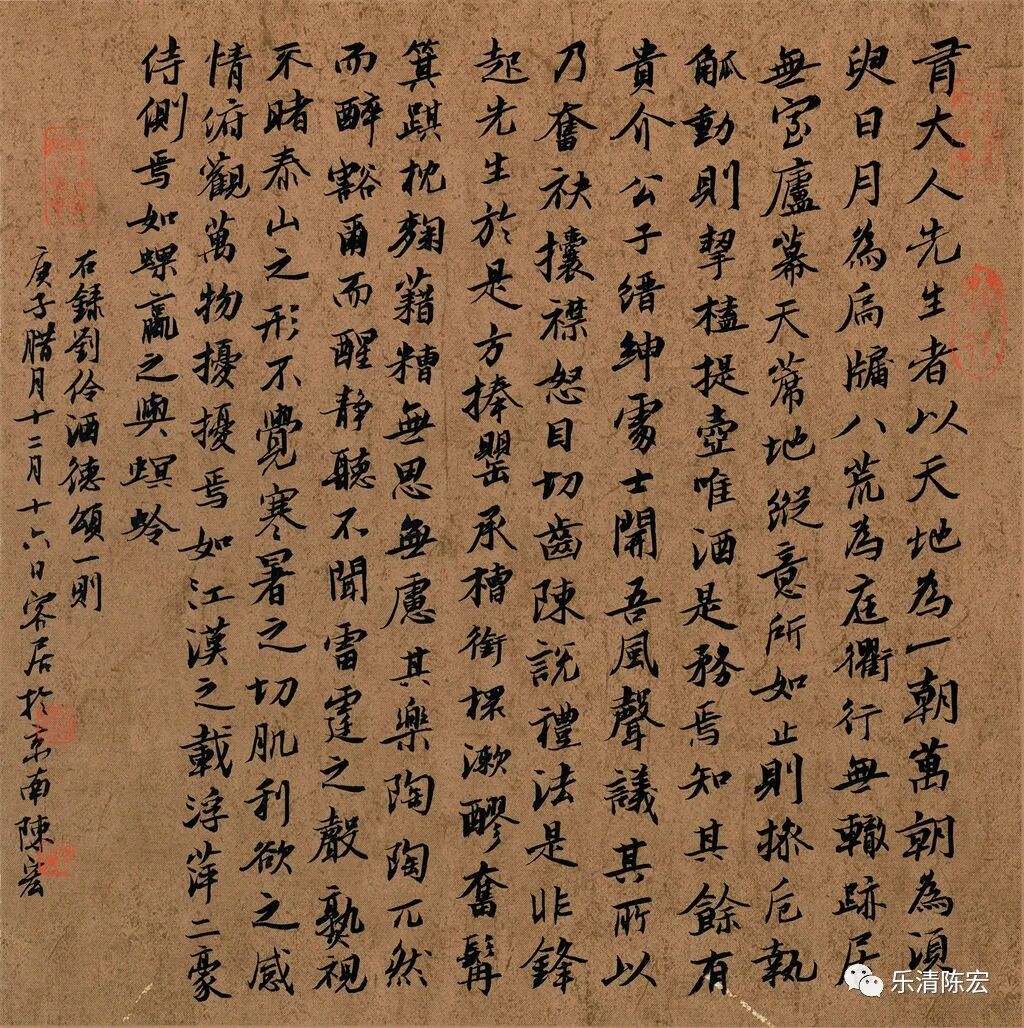 有大人先生者以天地為一朝萬朝為須
臾日月為扃牖八荒為庭衢行無轍跡居
無室廬幕天席地縱意所如止則操卮執
觚動則挈榼提壺唯酒是務焉知其餘有
貴介公子縉紳處士聞吾風聲議其所以
乃奮袂攘襟怒目切齒陳說禮法是非鋒
起先生於是方捧罌承槽銜杯漱醪奮髯
箕踑枕麴藉糟無思無慮其樂陶陶兀然
而醉豁爾而醒靜聽不聞雷霆之聲孰視
不睹泰山之形不覺寒暑之切肌利欲之感
情俯觀萬物擾擾焉如江漢之載浮萍二豪
侍側焉如蜾蠃之與螟蛉
右錄劉伶酒德頌一則
庚子腊月十二月十六日客居於京南陳宏
乐清陈宏